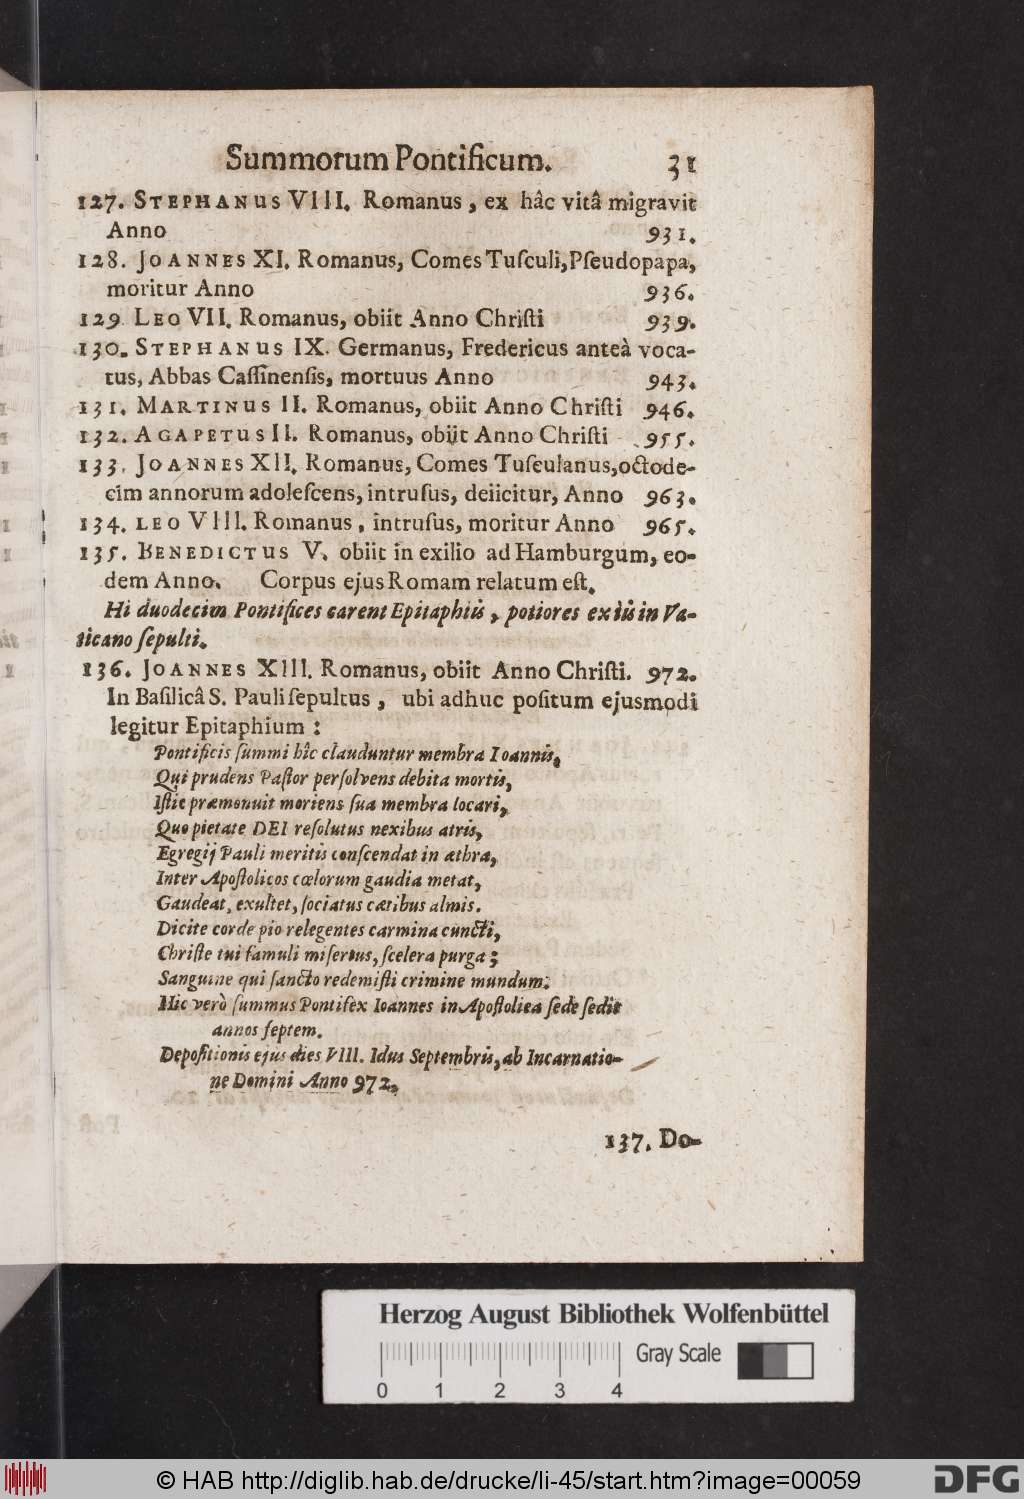 Summorum Pontificum. 31
127. STEPHANUS VIII. Romanus, ex hâc vitâ migravit
Anno 931.
128. JOANNES XI. Romanus, Comes Tuſculi, Pſeudopapa,
moritur Anno 936.
129. LEO VII. Romanus, obiit Anno Chriſti 939.
130. STEPHANUS IX. Germanus, Fredericus anteà voca-
tus, Abbas Caſſinenſis, mortuus Anno 943.
131. MARTINUS II. Romanus, obiit Anno Chriſti 946.
132. AGAPETUS II. Romanus, obiit Anno Chriſti 955.
133. JOANNES XII. Romanus, Comes Tuſculanus, octode-
cim annorum adoleſcens, intruſus, deiicitur, Anno 963.
134. LEO VIII. Romanus, intruſus, moritur Anno 965.
135. BENEDICTUS V. obiit in exilio ad Hamburgum, eo-
dem Anno. Corpus ejus Romam relatum eſt.
Hi duodecim Pontifices carent Epitaphiis, potiores ex iis in Va-
ticano ſepulti.
136. JOANNES XIII. Romanus, obiit Anno Chriſti. 972.
In Baſilicâ S. Pauli ſepultus, ubi adhuc poſitum ejusmodi
legitur Epitaphium:
Pontificis ſummi hîc clauduntur membra Ioannis,
Qui prudens Paſtor perſolvens debita mortis,
Iſtic præmonuit moriens ſua membra locari,
Quo pietate DEI reſolutus nexibus atris,
Egregij Pauli meritis conſcendat in æthra,
Inter Apoſtolicos cœlorum gaudia metat,
Gaudeat, exultet, ſociatus cœtibus almis.
Dicite corde pio relegentes carmina cuncti,
Chriſte tui famuli miſertus, ſcelera purga;
Sanguine qui ſancto redemiſti crimine mundum:
Hic verò ſummus Pontifex Ioannes in Apoſtolica ſede ſedit
annos ſeptem.
Depoſitionis ejus dies VIII. Idus Septembris, ab Incarnatio-
ne Domini Anno 972.
137. Do-
Herzog August Bibliothek Wolfenbüttel
Gray Scale
0 1 2 3 4
© HAB http://diglib.hab.de/drucke/li-45/start.htm?image=00059
DFG